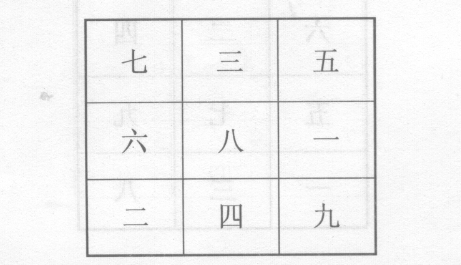 七 三 五
六 八 一
二 四 九